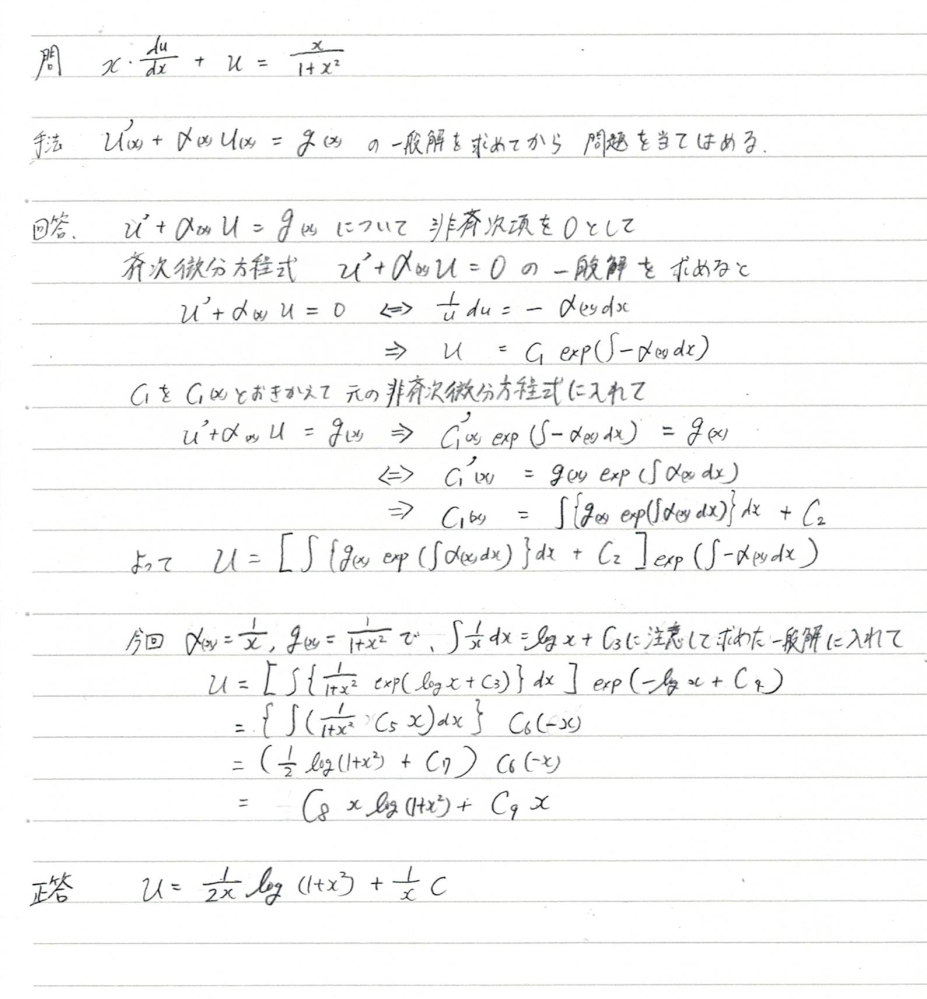 問 x・du/dx + u = x/(1+x²)
手法 u'(x) + α(x) u(x) = g(x) の一般解を求めてから 問題を当てはめる.
回答. u' + α(x) u = g(x) について 非斉次項を0として
斉次微分方程式 u' + α(x) u = 0 の一般解を求めると
u' + α(x) u = 0 ⇔ 1/u du = - α(x) dx
⇒ u = C₁ exp(∫-α(x) dx)
C₁を C₁(x) とおきかえて 元の非斉次微分方程式に入れて
u' + α(x) u = g(x) ⇒ C₁'(x) exp(∫-α(x) dx) = g(x)
⇔ C₁'(x) = g(x) exp(∫α(x) dx)
⇒ C₁(x) = ∫{g(x) exp(∫α(x) dx)} dx + C₂
よって u = [∫{g(x) exp(∫α(x) dx)} dx + C₂] exp(∫-α(x) dx)
今回 α(x) = 1/x, g(x) = 1/(1+x²) で、∫1/x dx = log x + C₃ に注意して求めた一般解に入れて
u = [∫{1/(1+x²) exp(log x + C₃)} dx] exp(-log x + C₄)
= {∫(1/(1+x²) C₅ x) dx} C₆(-x)
= (1/2 log(1+x²) + C₇) C₆(-x)
= C₈ x log(1+x²) + C₉ x
正答 u = 1/2x log(1+x²) + 1/x C